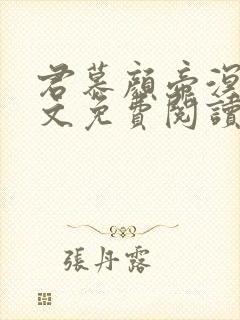 君慕顏帝溟
文免費閱讀
張丹露